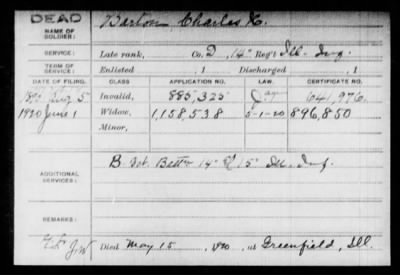 DEAD
NAME OF SOLDIER: Barton Charles H.
SERVICE: Late rank, Co. D, 14" Reg't Ill. Inf.
TERM OF SERVICE: Enlisted , 1 Discharged , 1
DATE OF FILING. CLASS. APPLICATION NO. LAW. CERTIFICATE NO.
Aug 5 Invalid, 885,325 641,976.
1920 June 1 Widow, 1,158,538 5-1-20 896,850
Minor,
ADDITIONAL SERVICES: B Vet. Battn 14" & 15" Ill. Inf.
REMARKS:
Died May 15, 1920, at Greenfield, Ill.